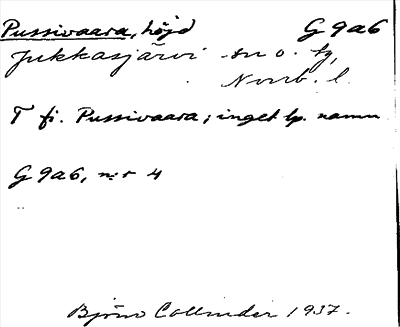 Pussivaara, höjd G 9a6
Jukkasjärvi sn o. tg,
Norrb. l.
T fi. Pussivaara; inget lp. namn
G 9a6, nr 4
Björn Collinder 1937.